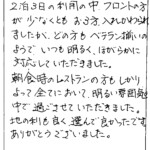 2泊3日の利用の中 フロントの方
が 少なくとも お3方、入れかわられ
ましたが、どの方も ベテラン揃いの
ようで いつも 明るく、ほがらかに
対応していただきました。
朝食時のレストランの方も しっかり
よって全てにおいて、明るい雰囲気
中で過ごさせていただきました。
地の利も良く 選んで良かったです
ありがとうございました。